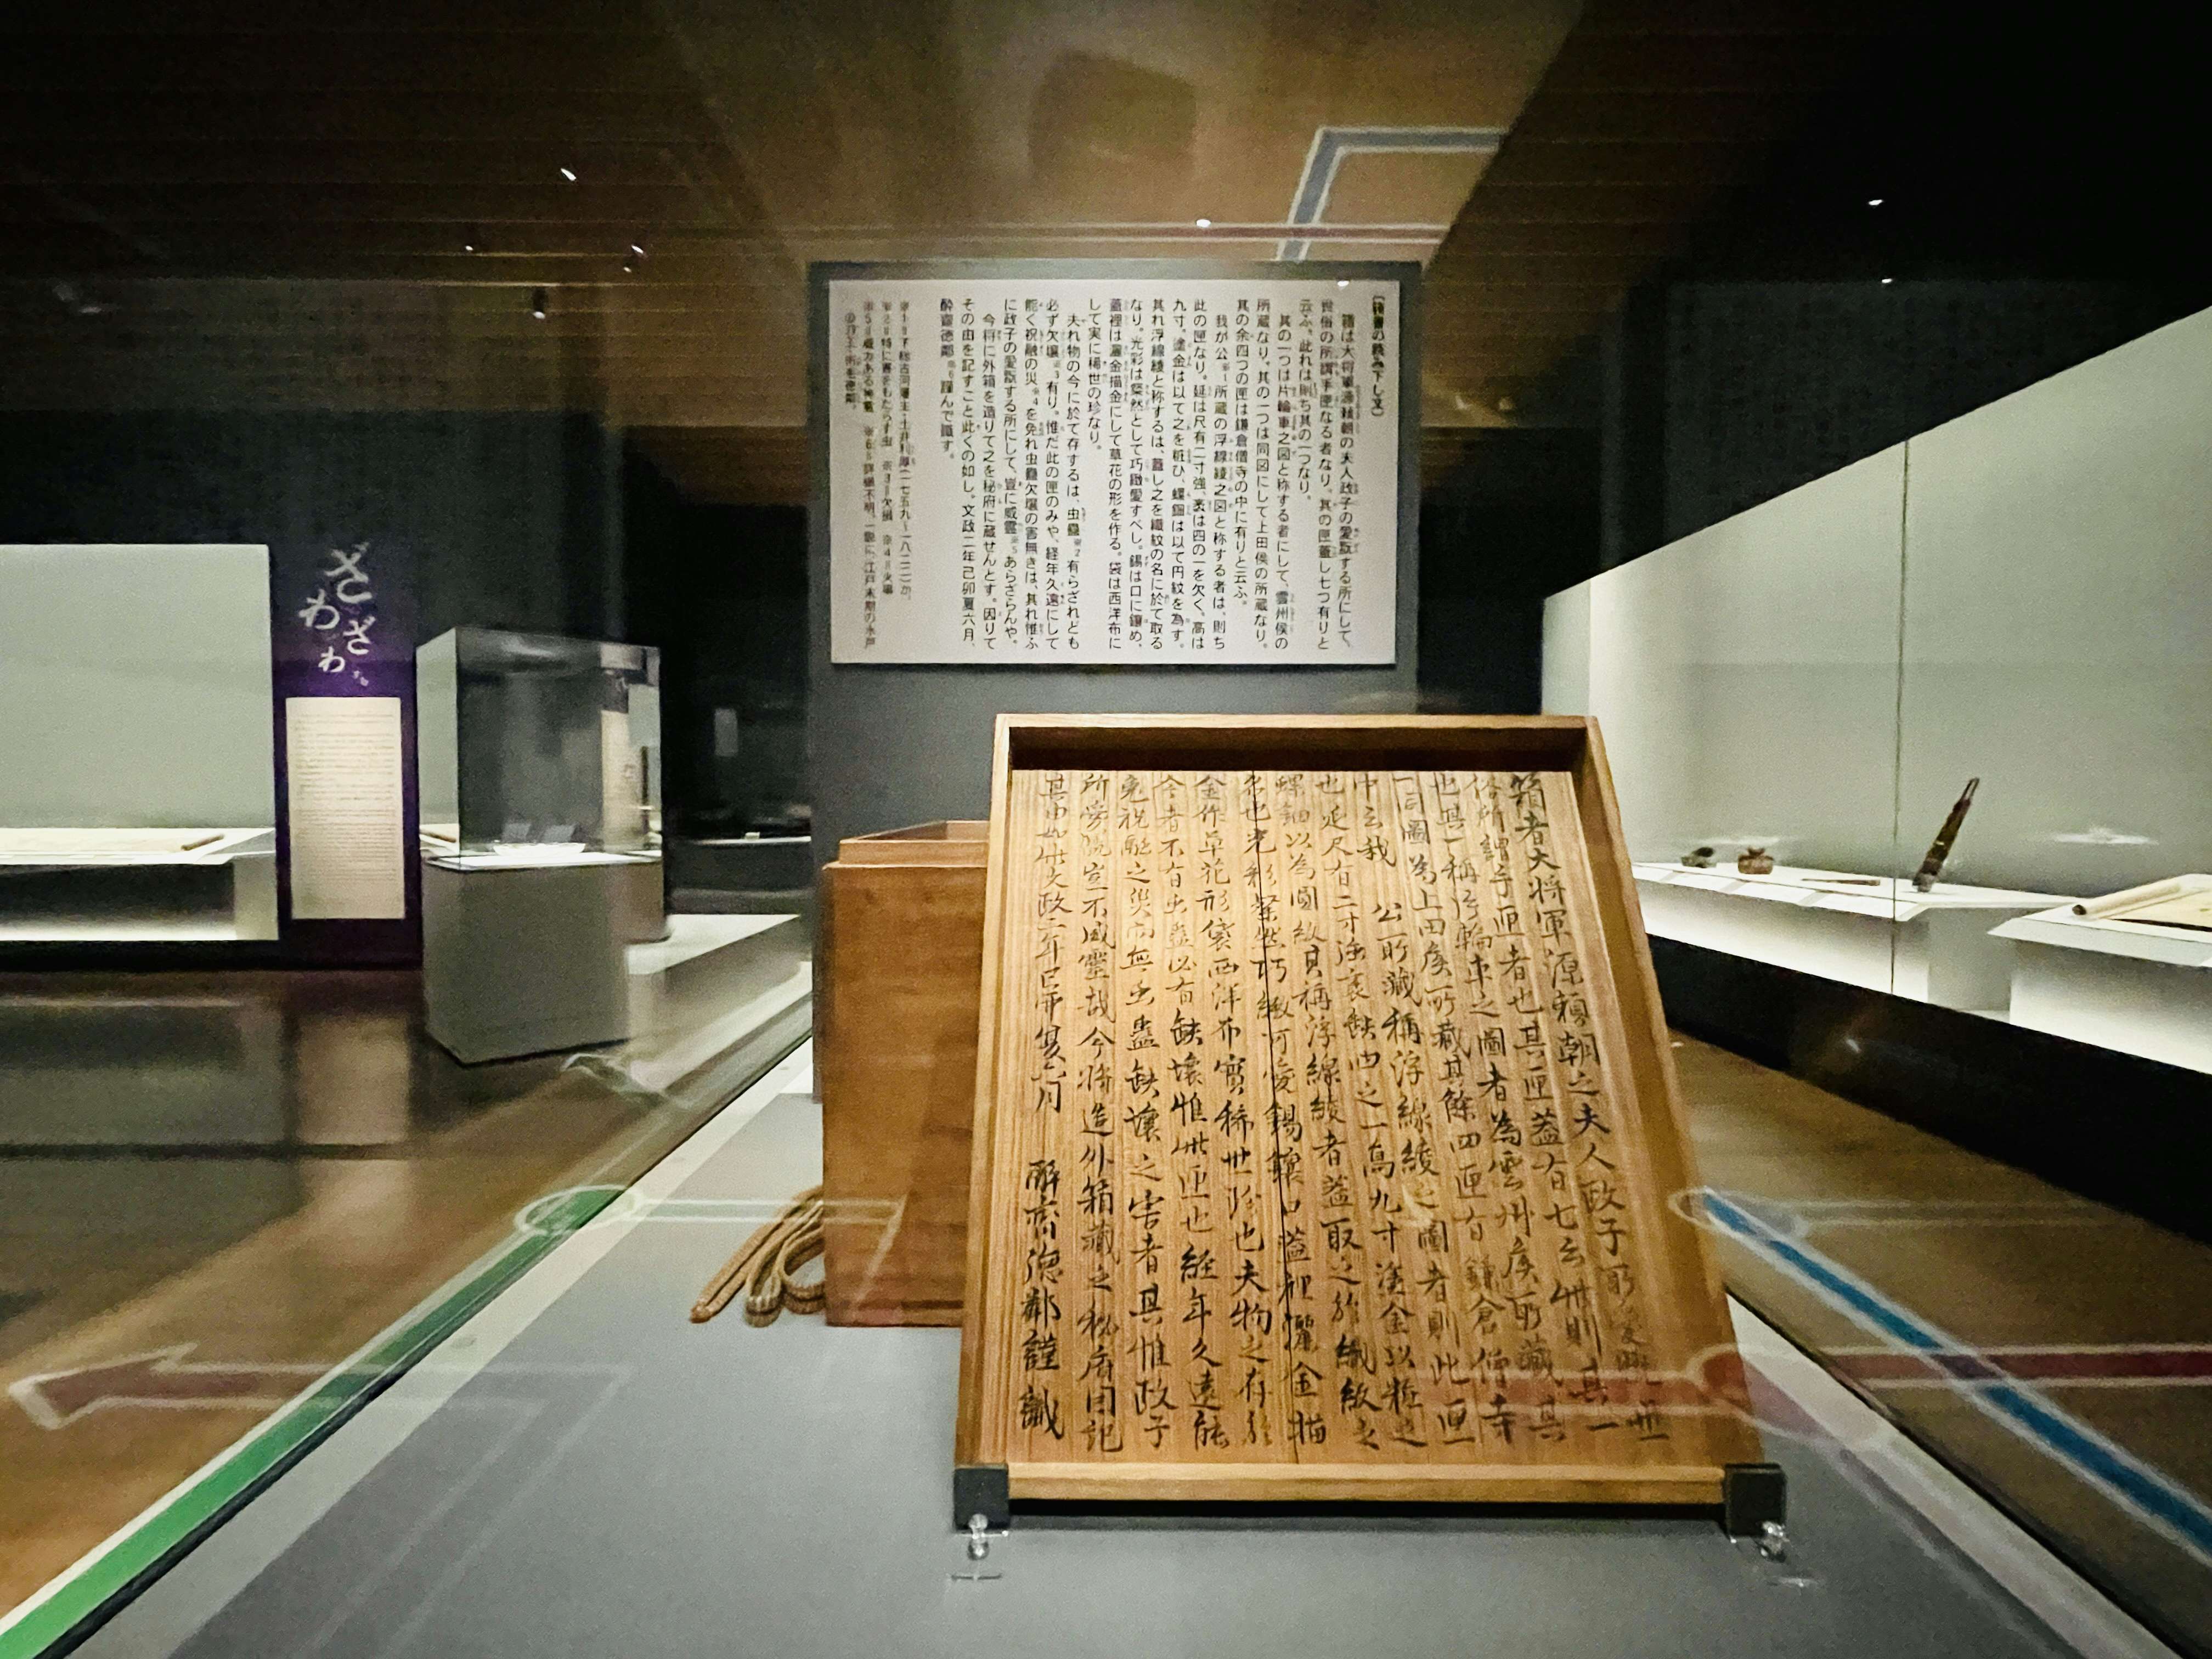 ざわざわ
【箱書の読み下し文】
箱は大将軍源頼朝の夫人政子の愛翫する所にして、
世俗の所謂手匣なる者なり。其の匣蓋し七つ有りと
云ふ。此れは則ち其の一つなり。
其の一つは片輪車之図と称する者にして、雲州侯の
所蔵なり。其の一つは同図にして上田侯の所蔵なり。
其の余四つの匣は鎌倉僧寺の中に有りと云ふ。
我が公※1所蔵の浮線綾之図と称する者は、則ち
此の匣なり。延は尺有二寸強、袤は四の一を欠く。高は
九寸。塗金は以て之を粧ひ、螺鈿は以て円紋を為す。
其れ浮線綾と称するは、蓋し之を織紋の名に於て取る
なり。光彩は粲然として巧緻愛すべし。錫は口に鑲め、
蓋裡は灑金描金にして草花の形を作る。袋は西洋布に
して実に稀世の珍なり。
夫れ物の今に於て存するは、虫蠱※2有らざれども
必ず欠壊※3有り。惟だ此の匣のみや、経年久遠にして
能く祝融の災※4を免れ虫蠱欠壊の害無きは、其れ惟ふ
に政子の愛翫する所にして、豈に威霊※5あらざらんや。
今将に外箱を造りて之を秘府に蔵せんとす。因りて
その由を記すこと此くの如し。文政二年己卯夏六月、
酔斎徳鄰※6謹んで識す。
※1=下総古河藩主・土井利厚(一七五九〜一八二二)か。
※2=特に害をもたらす虫 ※3=欠損 ※4=火事
※5=威力ある神霊 ※6=詳細不明。一説に、江戸末期の水戸
箱者大将軍源頼朝之夫人政子所愛翫世
俗所謂手匣者也其匣蓋有七云此則其一
也其一稱片輪車之圖者為雲州侯所藏其
一同圖為上田侯所藏其餘四匣有鎌倉僧寺
中云我 公所藏稱浮線綾之圖者則此匣
也延尺有二寸強袤缺四之一高九寸塗金以粧之
螺鈿以為圓紋其稱浮線綾者蓋取之於織紋之
名也光彩粲然巧緻可愛錫鑲口蓋裡灑金描
金作草花形袋西洋布實稀世珍也夫物之存於
今者不有虫蠱必有缺壊惟此匣也經年久遠能
免祝融之災而無虫蠱缺壊之害者其惟政子
所愛翫豈不威靈哉今將造外箱藏之秘府因記
其由如此文政二年己卯夏六月 醉齋徳鄰謹識